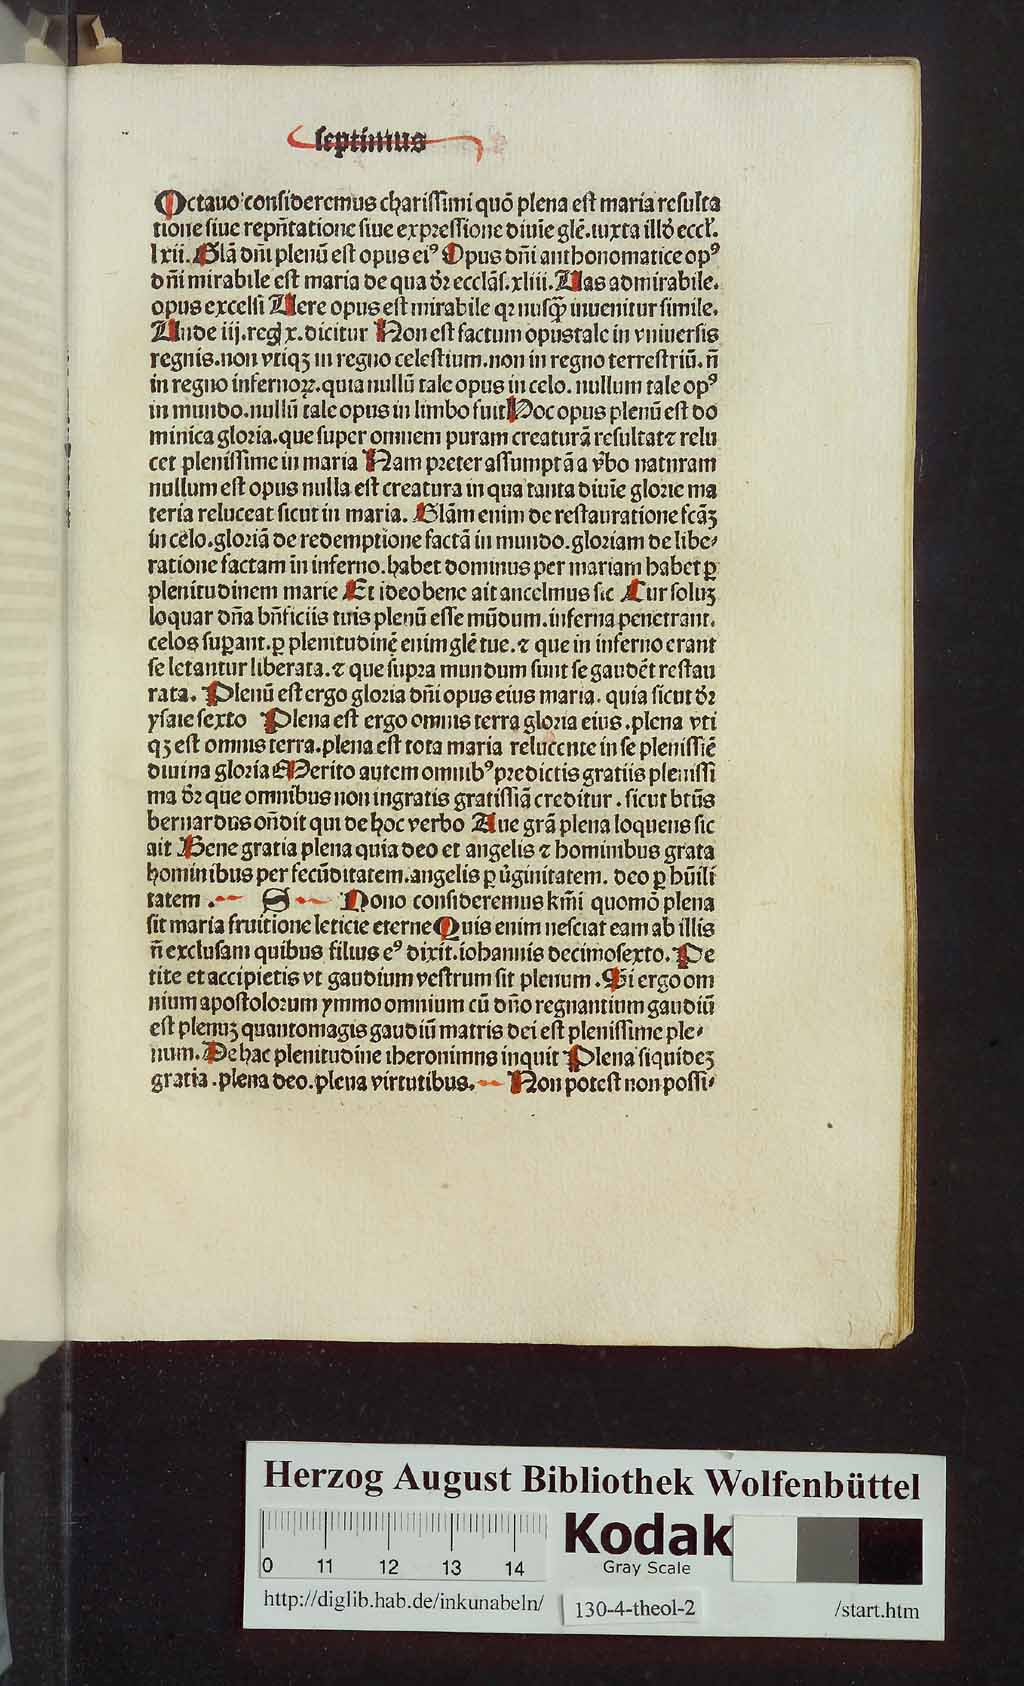 septimus
Octauo consideremus charissimi quō plena est maria resulta
tione siue repñtatione siue expressione diuīe glē. iuxta illḋ eccl̄.
lxii. Glā dñi plenū est opus eiꝰ Opus dñi anthonomatice opꝰ
dñi mirabile est maria de qua dr̄ ecclās. xliii. Uas admirabile.
opus excelsi Uere opus est mirabile qꝛ nusqꝫ̄ inuenitur simile.
Unde iij. reg x. dicitur Non est factum opus tale in vniuersis
regnis. non vtiqꝫ in regno celestium. non in regno terrestriū. ñ
in regno infernoꝝ. quia nullū tale opus in celo. nullum tale opꝰ
in mundo. nullū tale opus in limbo fuit Hoc opus plenū est do
minica gloria. que super omnem puram creaturā resultat ⁊ relu
cet plenissime in maria Nam preter assumptā a v̄bo naturam
nullum est opus nulla est creatura in qua tanta diuīe glorie ma
teria reluceat sicut in maria. Glām enim de restauratione fcāꝫ
in celo. gloriā de redemptione factā in mundo. gloriam de libe⸗
ratione factam in inferno. habet dominus per mariam habet ꝑ
plenitudinem marie Et ideo bene ait ancelmus sic Cur soluꝫ
loquar dña bñficiis tuis plenū esse mūdum. inferna penetrant.
celos suꝑant. ꝑ plenitudinē enim glē tue. ⁊ que in inferno erant
se letantur liberata. ⁊ que supra mundum sunt se gaudēt restau
rata. Plenū est ergo gloria dñi opus eius maria. quia sicut dr̄
ysaie sexto Plena est ergo omnis terra gloria eius . plena vti
qꝫ est omnis terra. plena est tota maria relucente in se plenissiē
diuina gloria Merito autem omnibꝰ predictis gratiis plenissi
ma dr̄ que omnibus non ingratis gratissiā creditur . sicut btūs
bernardus oñdit qui de hoc verbo Aue grā plena loquens sic
ait Bene gratia plena quia deo et angelis ⁊ hominibus grata
hominibus per fecūditatem. angelis ꝑ v̄ginitatem. deo ꝑ hūili
tatem . S Nono consideremus km̄i quomō plena
sit maria fruitione leticie eterne Quis enim nesciat eam ab illis
ñ exclusam quibus filius eꝰ dixit. iohannis decimosexto. Pe
tite et accipietis vt gaudium vestrum sit plenum . Si ergo om
nium apostolorum ymmo omnium cū dño regnantium gaudiū
est plenuꝫ quantomagis gaudiū matris dei est plenissime ple⸗
num. De hac plenitudine iheronimns inquit Plena siquideꝫ
gratia . plena deo. plena virtutibus. Non potest non possi⸗
Herzog August Bibliothek Wolfenbüttel
Kodak
Gray Scale
0 11 12 13 14
http://diglib.hab.de/inkunabeln/ 130-4-theol-2 /start.htm